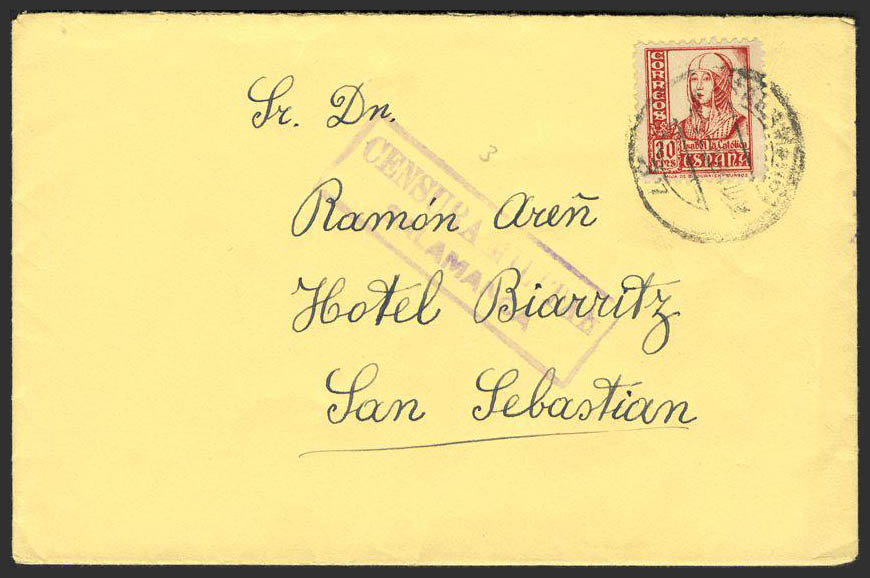 Sr. Dn.
3
Ramón Areñ
Hotel Biarritz
San Sebastián
CENSURA MILITAR
SALAMANCA
CORREOS
30
CTS
Isabel la Católica
ESPAÑA